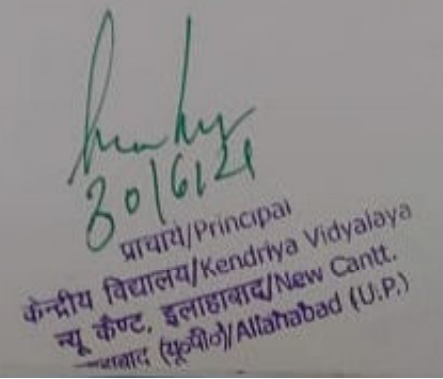 30/6/21
प्राचार्य/Principal
केन्द्रीय विद्यालय/Kendriya Vidyalaya
न्यू कैण्ट, इलाहाबाद/New Cantt.
(यू०पी०)/Allahabad (U.P.)